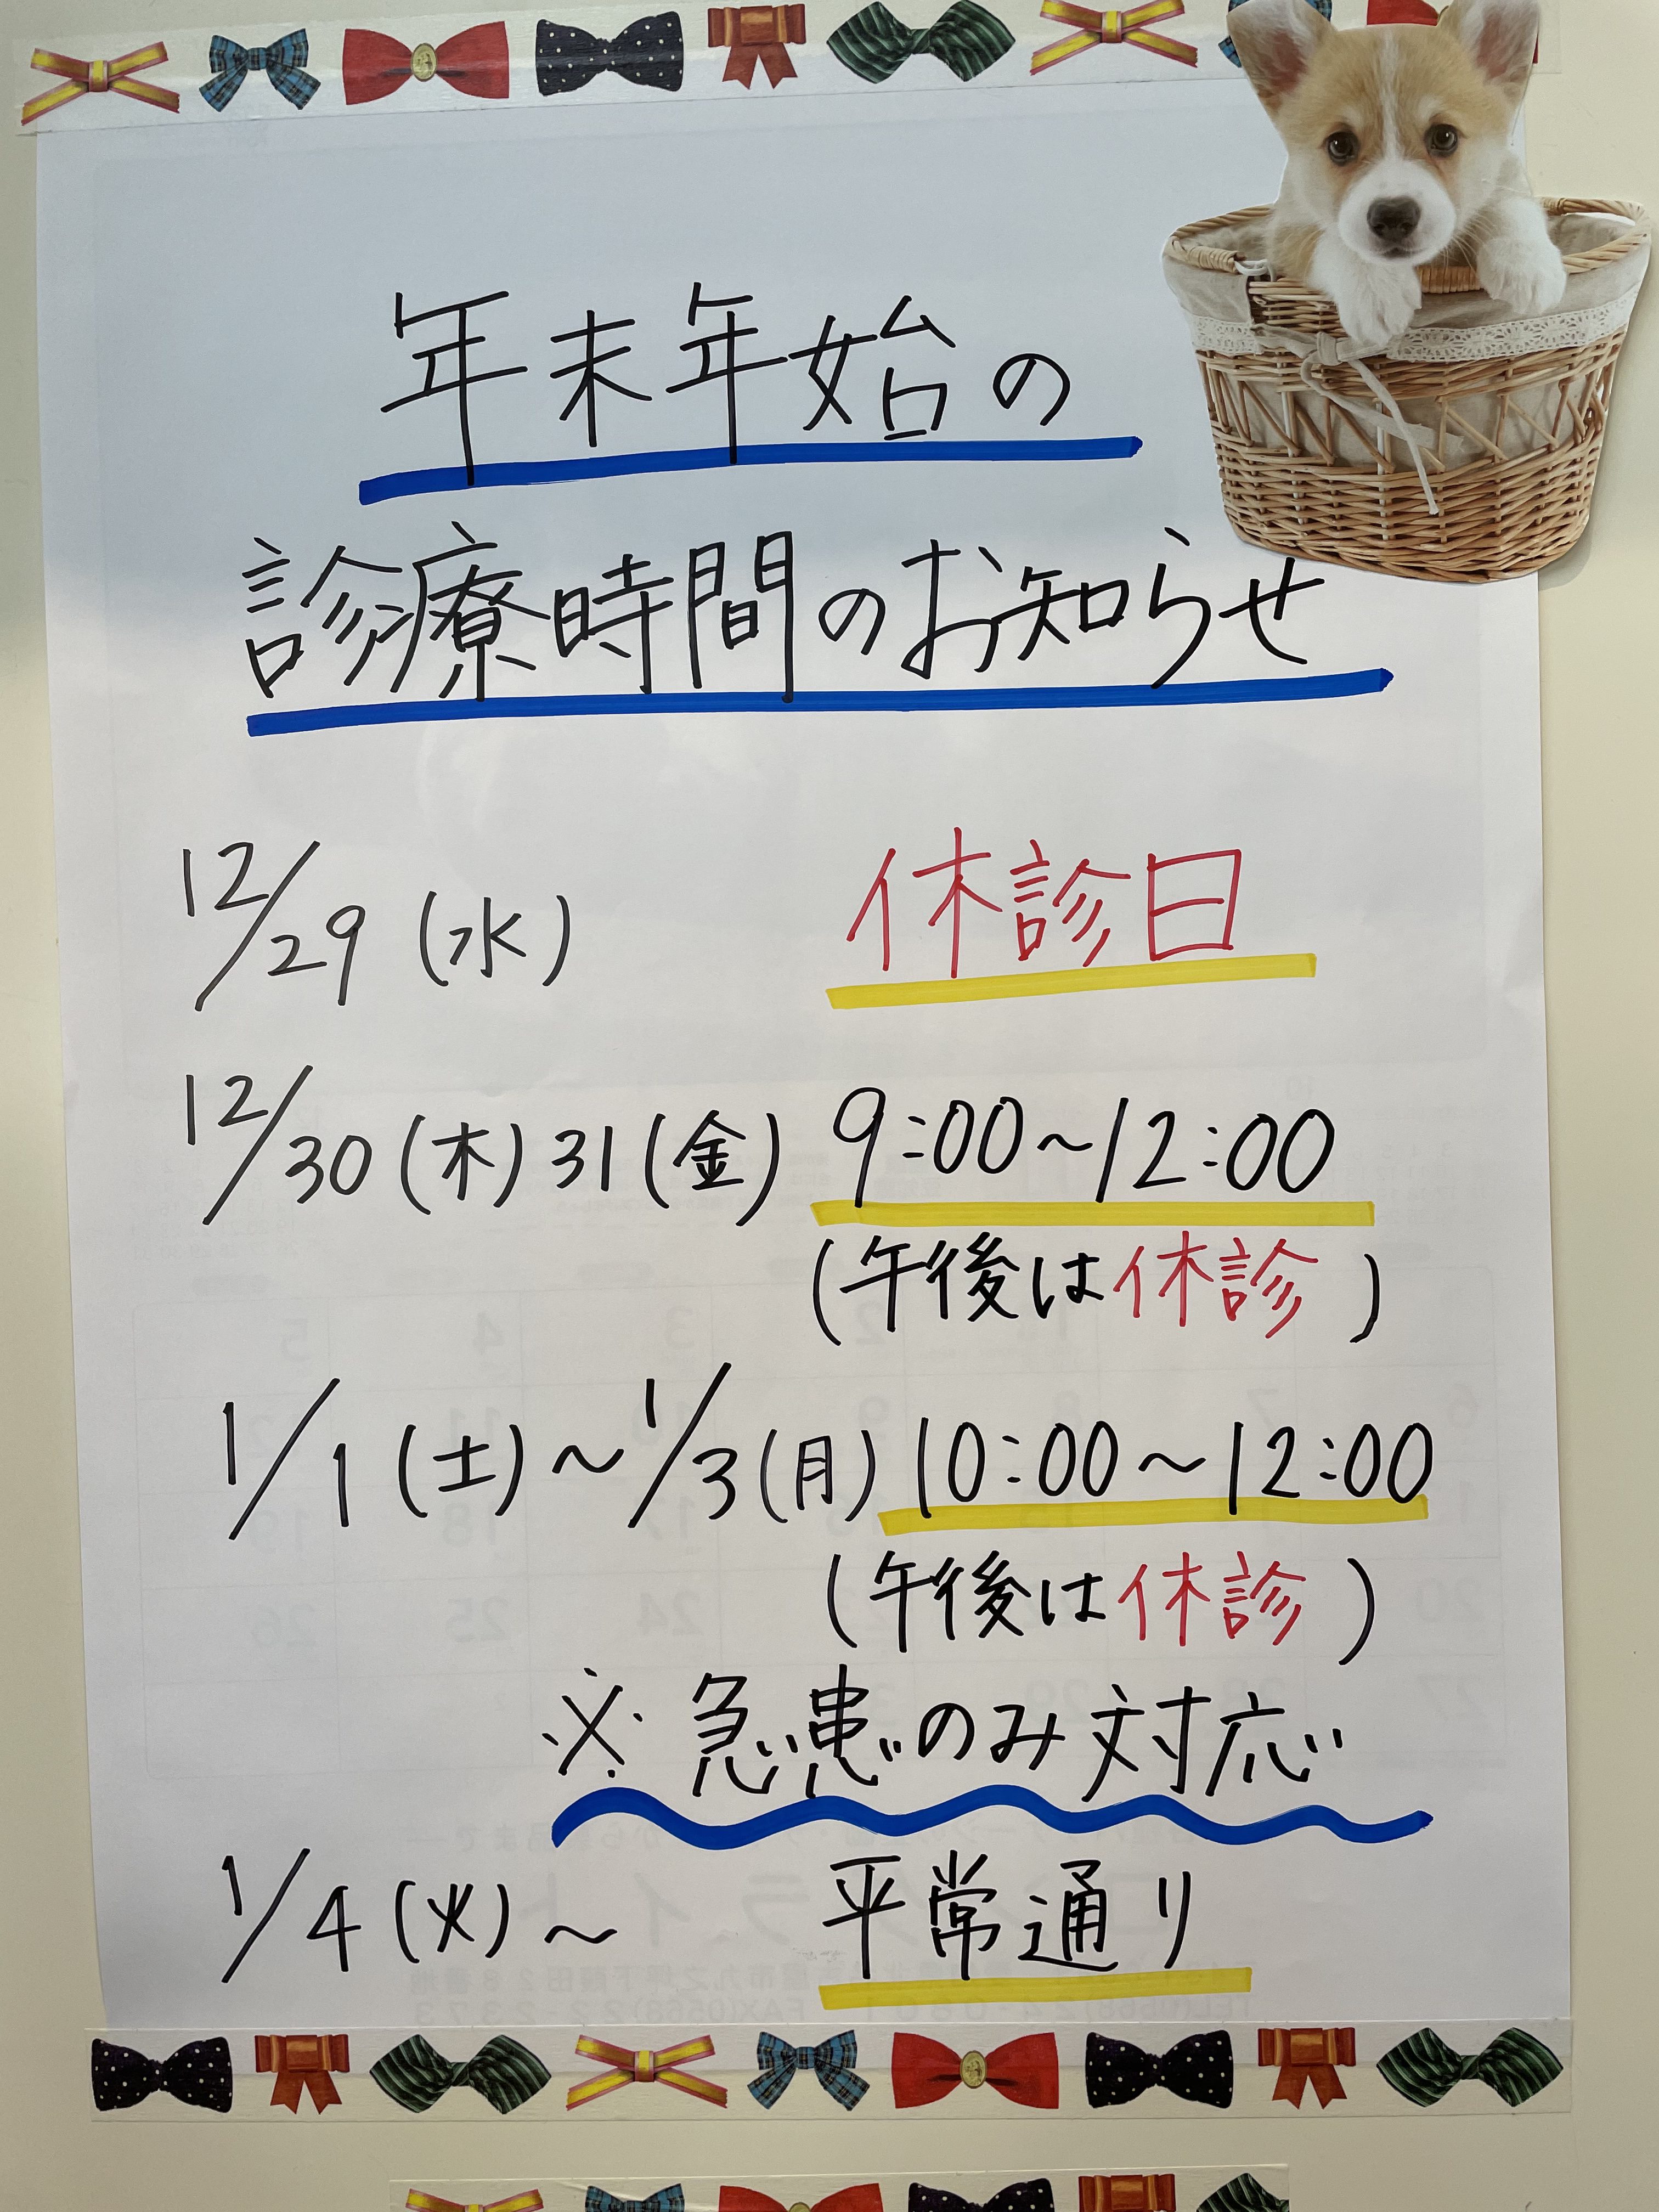 年末年始の
診療時間のお知らせ
12/29 (水) 休診日
12/30 (木) 31 (金) 9:00~12:00
(午後は休診)
1/1 (土) ~ 1/3 (月) 10:00~12:00
(午後は休診)
※ 急患のみ対応
1/4 (火) ~ 平常通り